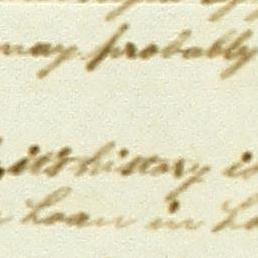 may probably
its history
Loan in